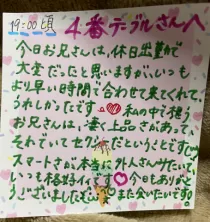 19:00頃
4番テーブルさんへ
今日お兄さんは、休日出勤で
大変だったと思いますが、いつも
より早い時間で合わせて来てくれて
うれしかったです。私の中で想う
お兄さんは、凄く上品さがあって、
それでいてセクシーだということです。
スマートさが、本当に外人さんみたいで、
いつも格好イイです♡今日もありがと
うございました。また会いたいです。